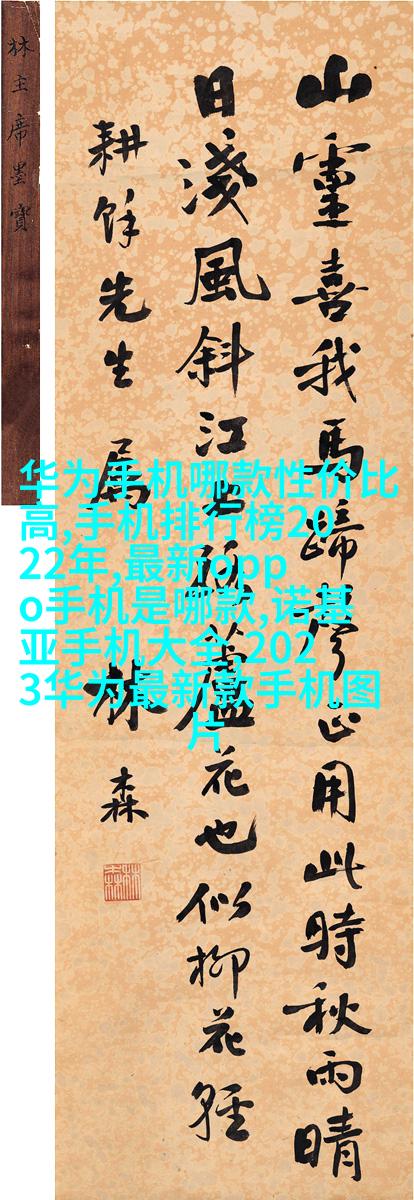 山靈喜我馬蹄正用此時秋雨晴
日淺風斜江花也似柳花輕
耕餘先生屬
林森
林主席墨寶
华为手机哪款性价比
高,手机排行榜20
22年,最新opp
o手机是哪款,诺基
亚手机大全,202
3华为最新款手机图
片